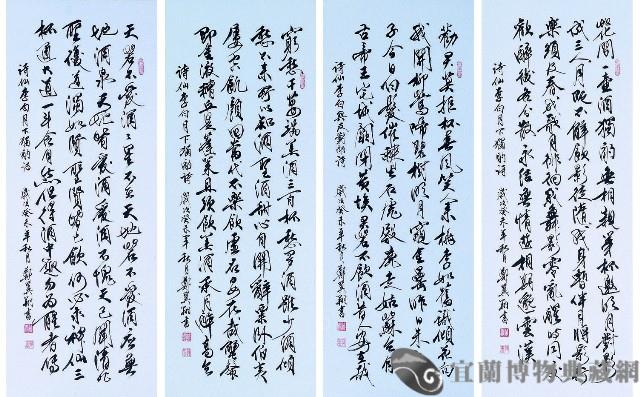 花間一壺酒獨酌無相親舉杯邀明月對影
成三人月既不解飲影徒隨我身暫伴月將影行
樂須及春我歌月徘徊我舞影零亂醒時同交
歡醉後各分散永結無情遊相期邈雲漢
詩仙李白月下獨酌詩 歲次癸未年秋月
勸君莫拒杯春風笑人來桃李如舊識傾花向
我開流鶯啼碧樹明月窺金罍昨日朱
子今日白髮催棘生石虎殿鹿走姑蘇台自
古帝王宅城闕閉黃埃君若不飲酒昔人安在哉
詩仙李白 歲次癸未年秋月
窮愁千萬端美酒三百杯愁多酒雖少酒傾
愁不來所以知酒聖酒酣心自開辭粟臥伯夷
屢空飢顏回當代不樂飲虛名安用哉蟹螯
即金液糟丘是蓬萊且須飲美酒乘月醉高台
詩仙李白月下獨酌詩 歲次癸未年秋月
天若不愛酒酒星不在天地若不愛酒應無
地酒泉天地既愛酒愛酒不愧天已聞清比
聖復道濁如賢聖賢既已飲何必求神仙三
杯通大道一斗合自然但得酒中趣勿為醒者傳
詩仙李白月下獨酌詩 歲次癸未年秋月
宜蘭博物典藏網